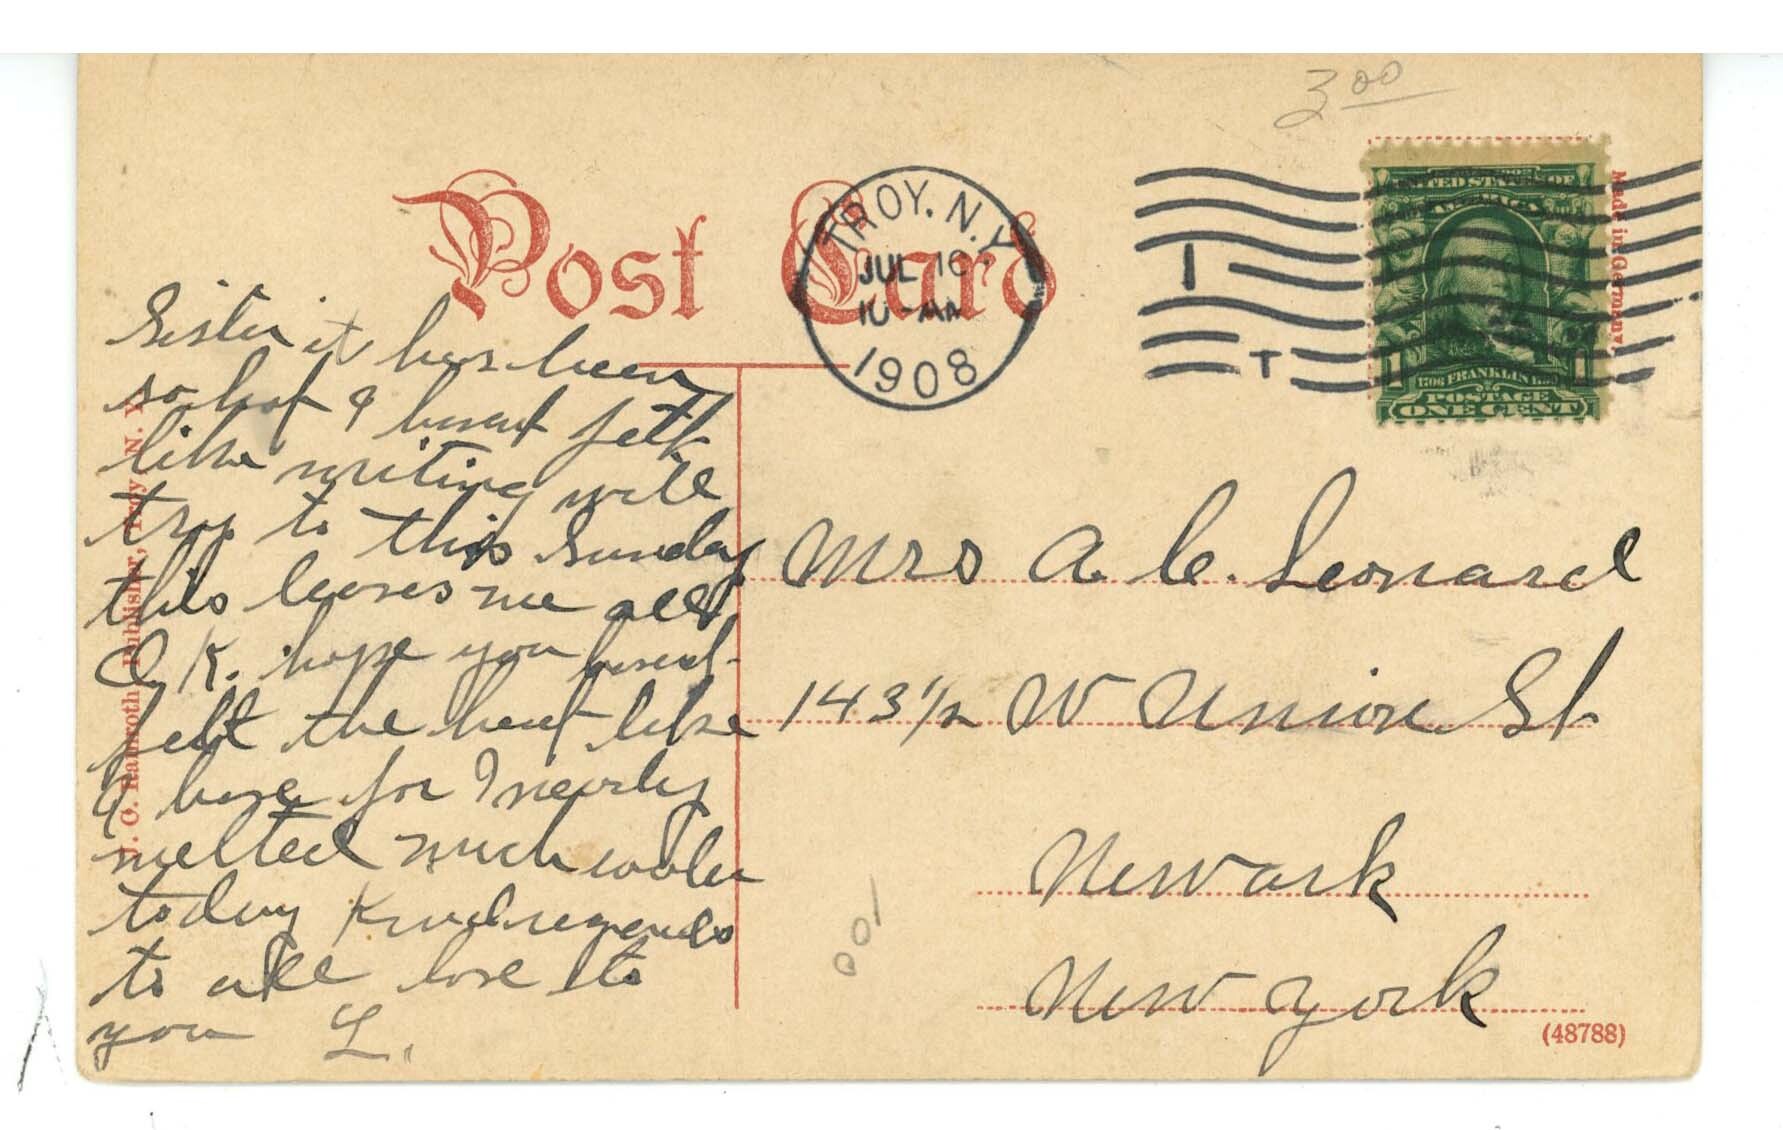 3 00
Post Card
TROY, N.Y.
JUL 16
10 - AM
1908
1
T
UNITED STATES OF
AMERICA
1706 FRANKLIN 1790
POSTAGE
ONE CENT
1 1
Made in Germany.
J. C. Hamroth Publisher, Troy, N. Y.
Sister it has been
so hot I havent felt
like writing will
try to this Sunday
this leaves me all
O.K. hope you havent
felt the heat like
I have for I nearly
melted much cooler
today Kind regards
to all love to
you L.
Mrs A. C. Leonard
143 1/2 W Union St
Newark
New York
100
(48788)